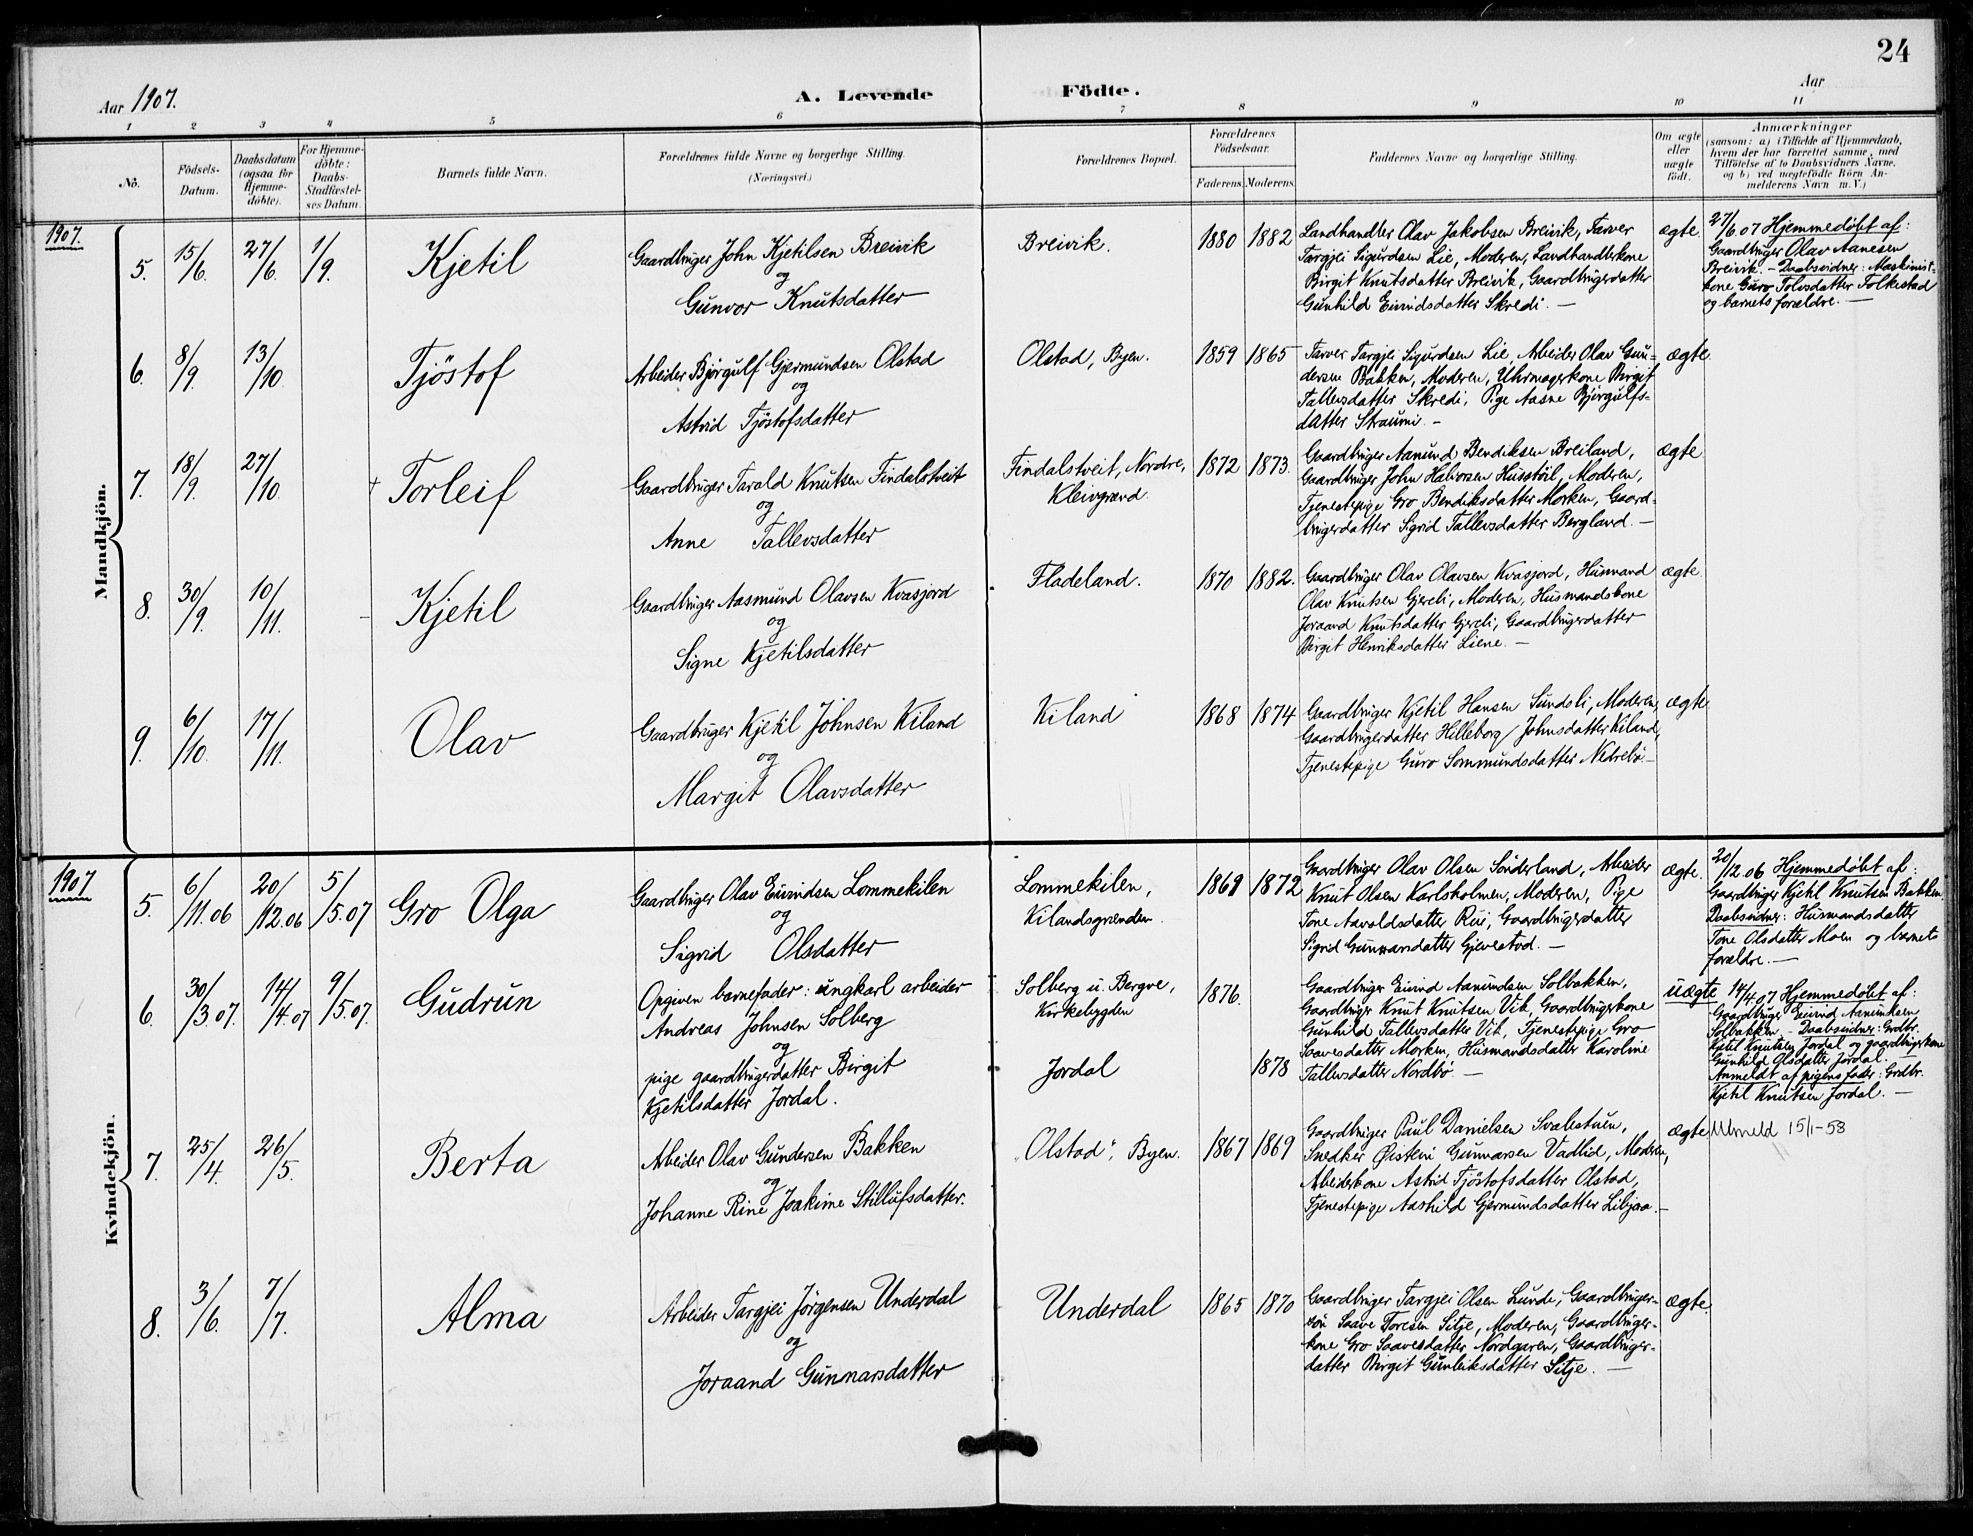 24
Aar 1907.
A. Levende Födte.
Aar
1 2 3 4 5 6 7 8 9 10 11
No.
Födsels-Datum.
Daabsdatum (ogsaa for Hjemme-döbte).
For Hjemme-döbte: Daabs-Stadfæstel-ses Datum.
Barnets fulde Navn.
Forældrenes fulde Navne og borgerlige Stilling.
(Næringsvei.)
Forældrenes Bopæl.
Forældrenes Födselsaar.
Faderens Moderens
Faddernes Navne og borgerlige Stilling.
Om ægte eller uægte födt.
Anmærkninger
(saasom: a) i Tilfælde af Hjemmedaab,
hvem der har forrettet samme, med
Tilföielse af to Daabsvidners Navne,
og b) ved uægtefödte Börn An-
melderens Navn m. V.)
1907.
Mandkjön.
5. 15/6. 27/6. 1/9. Kjetil
Gaardbruger John Kjetilsen Breivik
og
Gunvor Knutsdatter
Breivik. 1880 1882
Landhandler Olav Jakobsen Breivik, Farver
Targjei Sigurdsen Lie, Moderen, Landhandlerkone
Birgit Knutsdatter Breivik, Gaardbrugerdatter
Gunhild Eivindsdatter Skredi. —
ægte
27/6.07 Hjemmedøbt af:
Gaardbruger Olav Aanesen
Breivik. – Daabsvidner: Maskinist-
kone Guro Tolvsdatter Folkestad
og barnets forældre. —
6. 8/9. 13/10. Tjöstof
Arbeider Bjørgulf Gjermundsen Olstad
og
Astrid Tjöstofsdatter
Olstad, Byen. 1859 1865
Farver Targjei Sigurdsen Lie, Arbeider Olav Gun-
dersen Bakken, Moderen, Uhrmagerkone Birgit
Tallevsdatter Skredi, Pige Aasne Bjørgulfs-
datter Straumi. –
ægte.
7. 18/9. 27/10. † Torleif
Gaardbruger Tarald Knutsen Findalstveit
og
Anne Tallevsdatter
Findalstveit, Nordre,
Kleivgrænd.
1872 1873.
Gaardbruger Aanund Bendiksen Breiland,
Gaardbruger John Halvorsen Husstöil, Moderen,
Tjenestepige Gro Bendiksdatter Morken, Gaard-
brugerdatter Sigrid Tallevsdatter Bergland. —
ægte
8. 30/9. 10/11. – Kjetil
Gaardbruger Aasmund Olavsen Kvasjord
og
Signe Kjetilsdatter
Fladeland. 1870 1882.
Gaardbruger Olav Olavsen Kvasjord, Husmand
Olav Knutsen Gjereli, Moderen, Husmandskone
Joraand Knutsdatter Gjereli, Gaardbrugerdatter
Birgit Henriksdatter Liene. —
ægte.
9. 6/10. 17/11. Olav
Gaardbruger Kjetil Johnsen Kiland
og
Margit Olavsdatter
Kiland 1868 1874
Gaardbruger Kjetil Hansen Sundsli, Moderen,
Gaardbrugerdatter Hilleborg Johnsdatter Kiland,
Tjenestepige Guro Sommundsdatter Nedrebö. –
ægte
1907
Kvindekjön.
5. 6/11.06 20/12.06 5/5.07 Gro Olga
Gaardbruger Olav Eivindsen Lommekilen
og
Sigrid Olsdatter
Lommekilen,
Kilandsgrænden.
1869 1872
Gaardbruger Olav Olsen Sönderland, Arbeider
Knut Olsen Karlsholmen, Moderen, Pige
Tone Aavoldsdatter Rui, Gaardbrugerdatter
Sigrid Gunnarsdatter Gjevestad. —
ægte.
20/12.06 Hjemmedøbt af:
Gaardbruger Kjetil Knutsen Bakken.
Daabsvidner: Husmandsdatter
Tone Olsdatter Moen og barnets
forældre. —
6. 30/3.07. 14/4.07 9/5.07. Gudrun
Opgiven barnefader: ungkarl arbeider
Andreas Johnsen Solberg
og
pige gaardbrugerdatter Birgit
Kjetilsdatter Jordal.
Solberg u. Bergve,
Kirkebygden
Jordal
1876.
1878
Gaardbruger Eivind Aanundsen Solbakken,
Gaardbruger Knut Knutsen Vik, Gaardbrugerkone
Gunhild Tallevsdatter Vik, Tjenestepige Gro
Saavesdatter Morken, Husmandsdatter Karoline
Tallevsdatter Nordbö —
uægte
14/4.07 Hjemmedøbt af:
Gaardbruger Eivind Aanundsen
Solbakken. – Daabsvidner: Grdbr.
Kjetil Knutsen Jordal og gaardbrugerkone
Gunhild Olsdatter Jordal. —
Anmeldt af pigens fader: Grdbr.
Kjetil Knutsen Jordal. —
7. 25/4. 26/5. Berta
Arbeider Olav Gundersen Bakken
og
Johanne Rine Joakime Stillufsdatter.
"Olstad", Byen. 1867 1869
Gaardbruger Paul Danielsen Svalestuen,
Snedker Øistein Gunnarsen Vadlid, Moderen,
Arbeiderkone Astrid Tjöstofsdatter Olstad,
Tjenestepige Aashild Gjermundsdatter Liljaa. –
ægte
Utmeld 15/1-58
8. 3/6. 7/7. Alma
Arbeider Targjei Jörgensen Underdal
og
Joraand Gunnarsdatter
Underdal 1865 1870
Gaardbruger Targjei Olsen Lunde, Gaardbruger-
sön Saave Toresen Sitje, Moderen, Gaardbruger-
kone Gro Saavesdatter Nordgaren, Gaardbruger-
datter Birgit Gunleiksdatter Sitje. —
ægte.